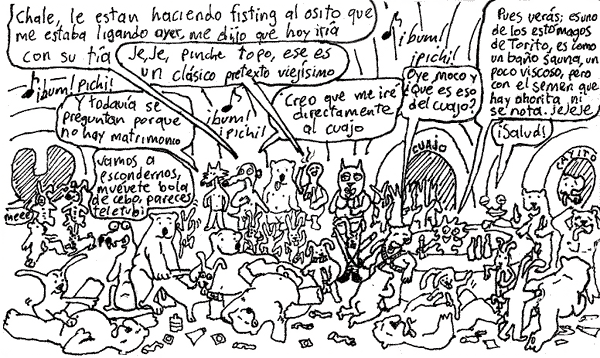 Chale, le estan haciendo fisting al osito que
me estaba ligando ayer, me dijo que hoy iria
con su tía
Je, Je, pinche topo, ese es
un clásico pretexto viejísimo
¡bum! ¡pichi!
Oye, moco y
¿Que es eso
del cuajo?
Pues verás; es uno
de los estómagos
de Torito, es como
un baño sauna, un
poco viscoso, pero
con el semen que
hay ahorita, ni
se nota. jejeje
¡bum! ¡pichi!
Y todavía se
preguntan porque
no hay matrimonio
¡bum!
¡pichi!
Creo que me iré
directamente
al cuajo
¡Salud!
Vamos a
escondernos,
muévete bola
de cebo, pareces
teletubi
CUAJO
meee